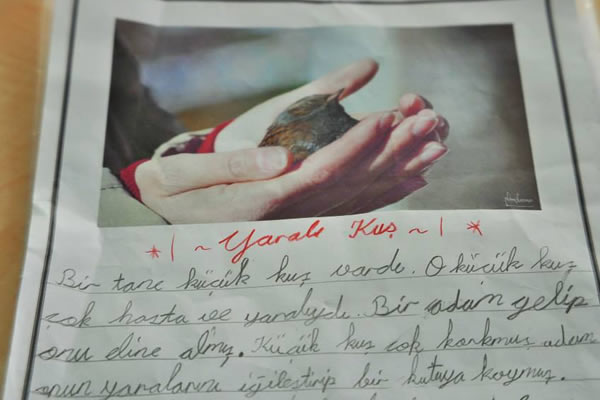 *| ~ Yaralı Kuş ~ | *
Bir tane küçük kuş vardı. O küçük kuş
çok hasta ve yaralıydı. Bir adam gelip
onu eline almış. Küçük kuş çok korkmuş adam
onun yaralarını iğileştirip bir kutuya koymuş.